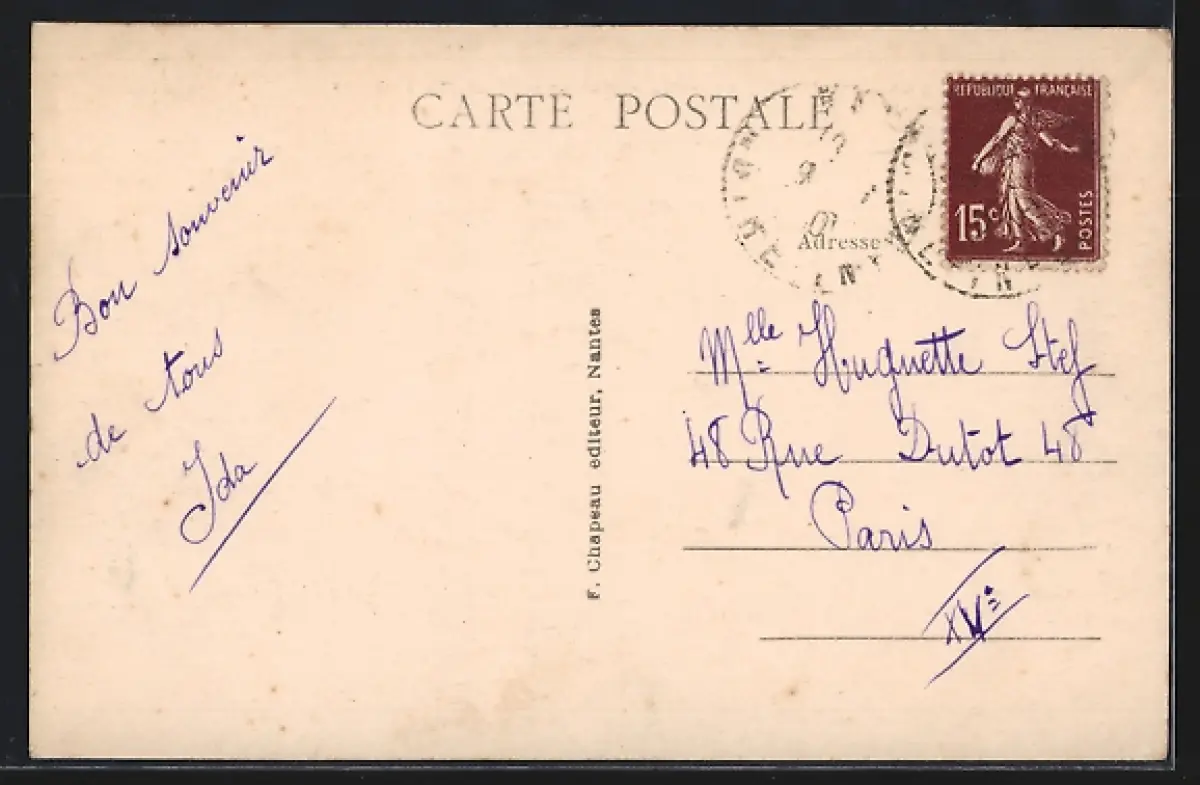 CARTE POSTALE
REPUBLIQUE FRANÇAISE
15c
POSTES
Adresse
Bon souvenir
de tous
Ida
F. Chapeau editeur, Nantes
Mlle Huguette Stef
48 Rue Dutot 48
Paris
XVe